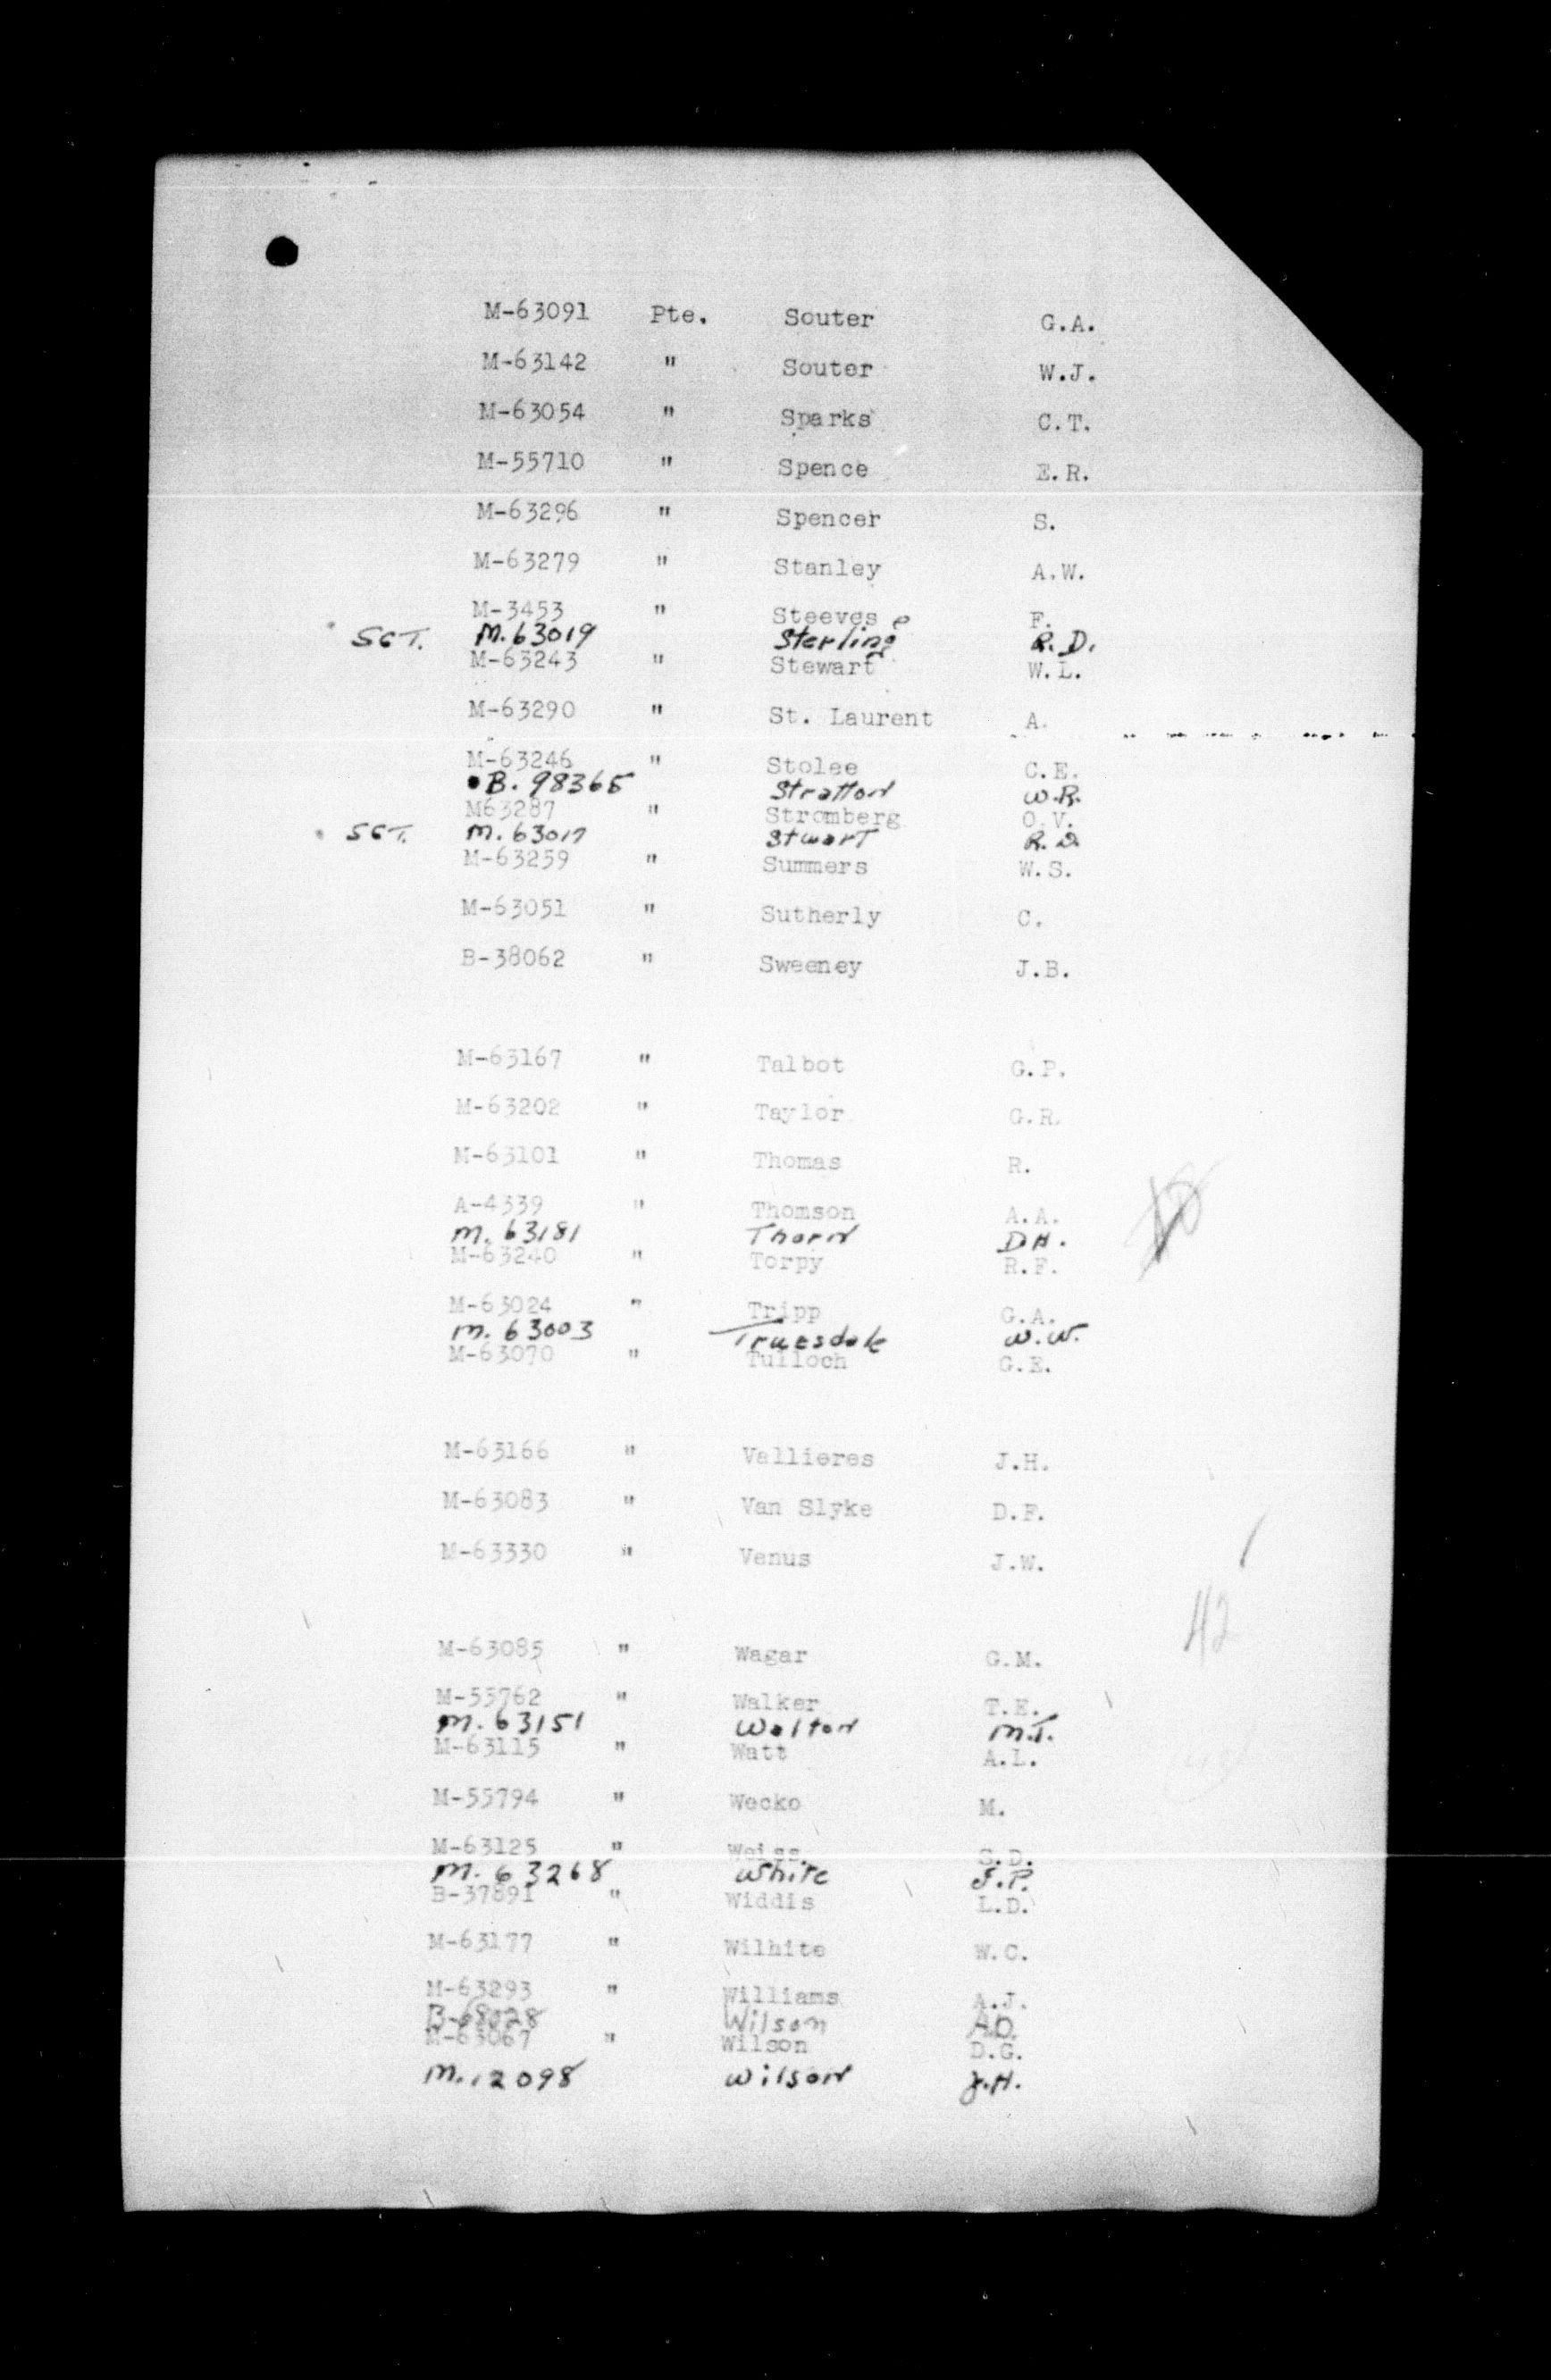 M-63091 Pte. Souter G.A.
M-63142 " Souter W.J.
M-63054 " Sparks C.T.
M-55710 " Spence E.R.
M-63296 " Spencer S.
M-63279 " Stanley A.W.
M-3453 " Steeves F.
SGT. M.63019 Sterling R.D.
M-63243 " Stewart W.L.
M-63290 " St. Laurent A.
M-63246 " Stolee C.E.
B.98365 Stratton W.R.
M63287 " Stromberg O.V.
SGT. M.63017 Stwart R.D.
M-63259 " Summers W.S.
M-63051 " Sutherly C.
B-38062 " Sweeney J.B.
M-63167 " Talbot G.P.
M-63202 " Taylor G.R.
M-63101 " Thomas R.
A-4339 " Thomson A.A.
M.63181 Thorn D.H.
M-63240 " Torpy R.F.
M-63024 " Tripp G.A.
M.63003 Truesdale W.W.
M-63070 " Tulloch G.E.
M-63166 " Vallieres J.H.
M-63083 " Van Slyke D.F.
M-63330 " Venus J.W.
42
M-63085 " Wagar G.M.
M-55762 " Walker T.E.
M.63151 Walton M.T.
M-63115 " Watt A.L.
M-55794 " Wecko M.
M-63125 " Weiss S.D.
M.63268 White J.P.
B-37891 " Widdis L.D.
M-63177 " Wilhite W.C.
M-63293 " Williams A.J.
Wilson A.D.
M-63067 " Wilson D.G.
M.12098 Wilson J.H.